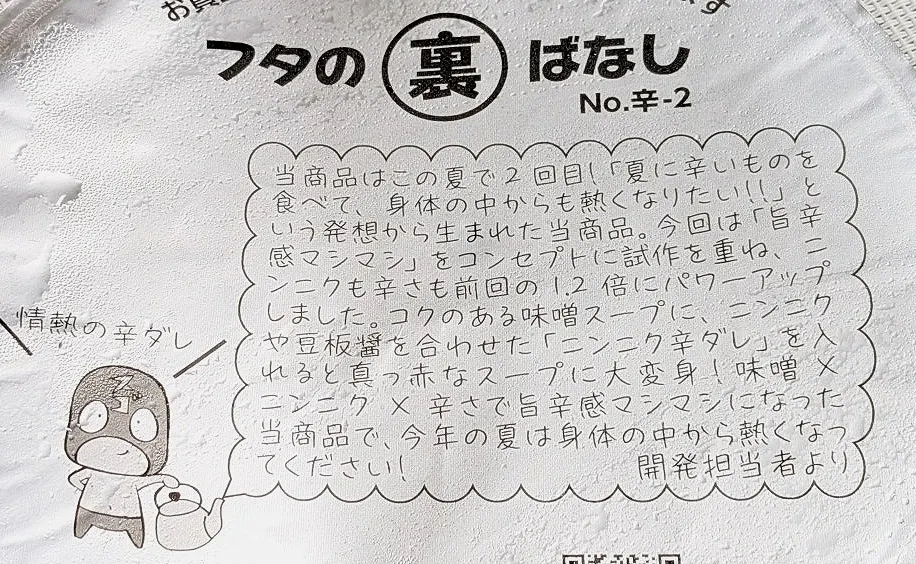 フタの裏ばなし
No.辛-2
当商品はこの夏で2回目!「夏に辛いものを
食べて、身体の中からも熱くなりたい!!」と
いう発想から生まれた当商品。今回は「旨辛
感マシマシ」をコンセプトに試作を重ね、ニ
ンニクも辛さも前回の1.2倍にパワーアップ
しました。コクのある味噌スープに、ニンニク
や豆板醤を合わせた「ニンニク辛ダレ」を入
れると真っ赤なスープに大変身!味噌×
ニンニク×辛さで旨辛感マシマシになった
当商品で、今年の夏は身体の中から熱くなっ
てください!
開発担当者より
情熱の辛ダレ